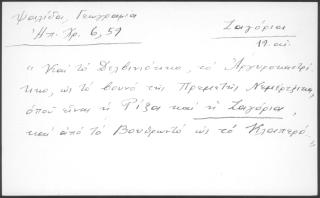 Ψαλίδα, Γεωγραφία
Ηπ. Χρ. 6, 51
Ζαγόρια
19. αἰ.
"Καὶ τὸ Δελβινιότικο, τὸ Ἀργυροκαστρί
τικο, ὡς τὸ βουνὸ τῆς Πρεμετῆς Νεμέρτσικα,
ὁποῦ εἶναι ἡ Ρίζα καὶ ἡ Ζαγόρια,
καὶ ἀπὸ τὸ Βουθρωτὸ ὡς τὸ